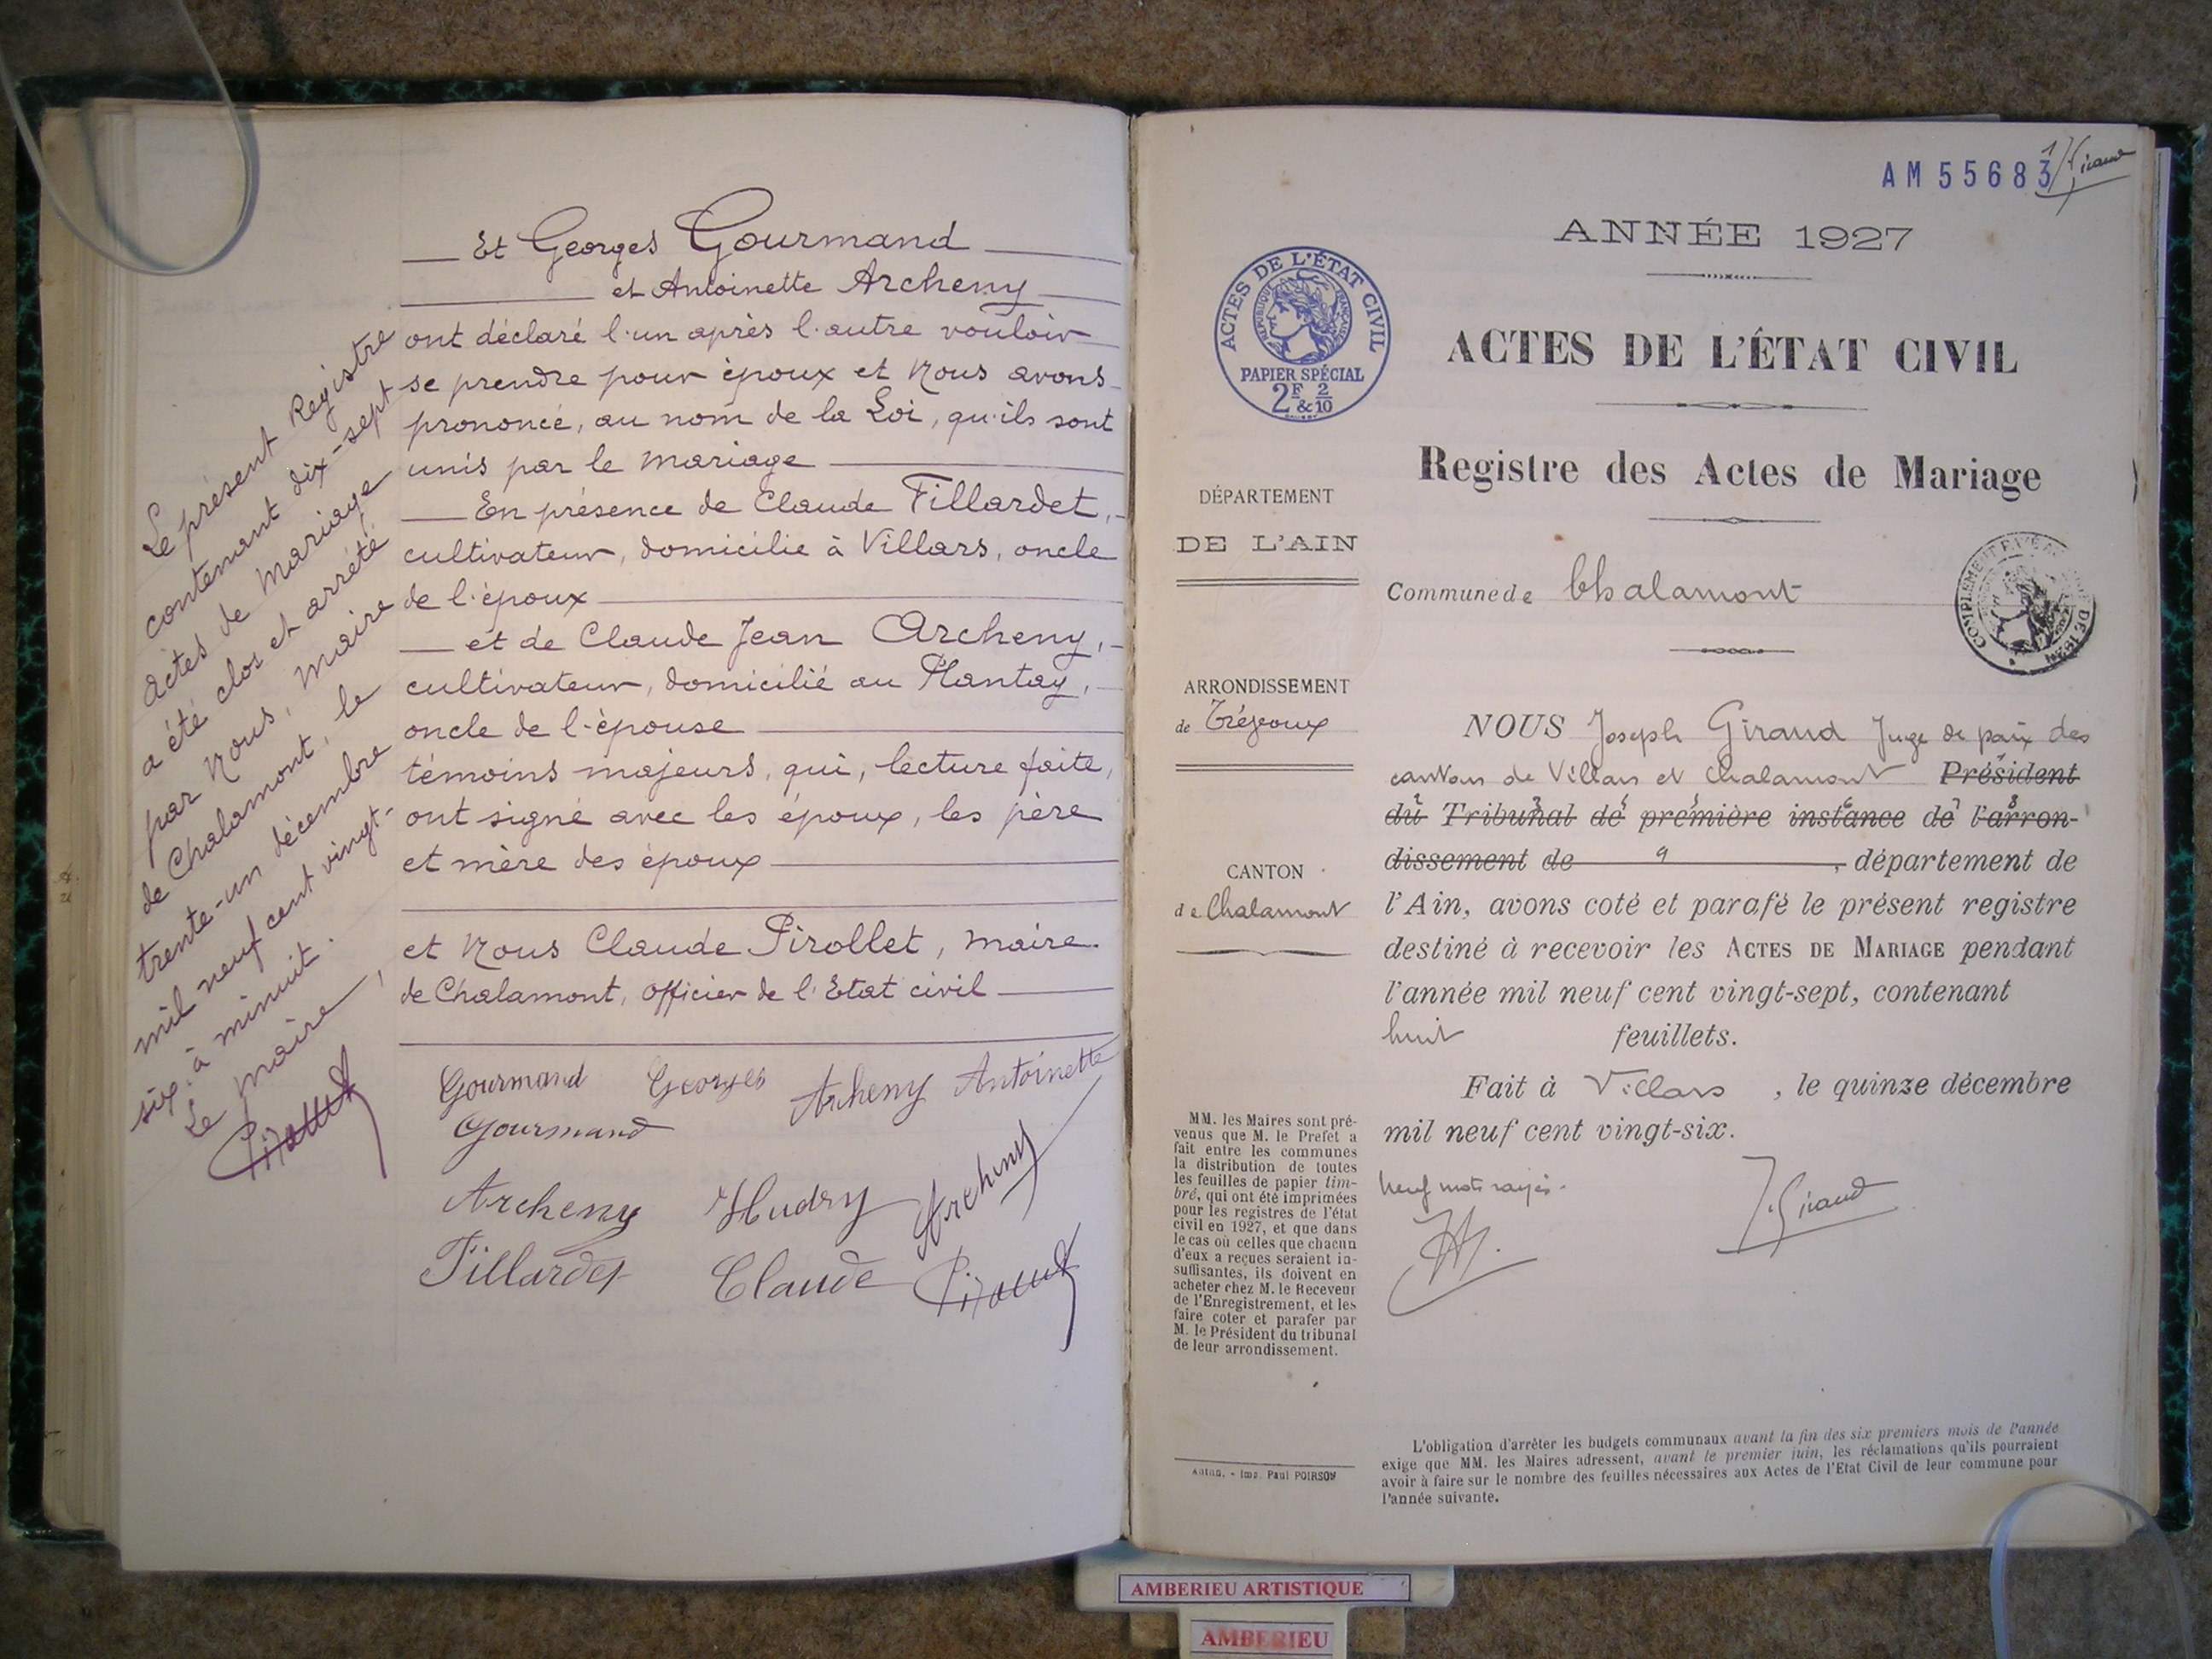 Et Georges Gourmand
et Antoinette Archeny
ont déclaré l'un après l'autre vouloir
se prendre pour époux et Nous avons
prononcé, au nom de la Loi, qu'ils sont
unis par le mariage
En présence de Claude Fillardet,
cultivateur, domicilié à Villars, oncle
de l'époux
et de Claude Jean Archeny,
cultivateur, domicilié au Plantay,
oncle de l'épouse
témoins majeurs, qui, lecture faite,
ont signé avec les époux, les père
et mère des époux
et Nous Claude Pirollet, maire
de Chalamont, officier de l'Etat civil
Gourmand Georges Archeny Antoinette
Gourmand
Archeny Hudry Archeny
Fillardet Claude
Le présent Registre
contenant dix-sept
actes de mariage
a été clos et arrêté
par Nous, Maire
de Chalamont, le
trente-un décembre
mil neuf cent vingt-
six, à minuit.
Le Maire,
AM 55683
1
J. Giraud
ANNÉE 1927
ACTES DE L'ÉTAT CIVIL
RÉPUBLIQUE FRANÇAISE
PAPIER SPÉCIAL
2F & 2/10
ACTES DE L'ÉTAT CIVIL
Registre des Actes de Mariage
DÉPARTEMENT
DE L'AIN
Commune de Chalamont
ARRONDISSEMENT
de Trévoux
CANTON
de Chalamont
NOUS Joseph Giraud Juge de paix des
cantons de Villars et Chalamont Président
du Tribunal de première instance de l'arron-
dissement de , département de
l'Ain, avons coté et parafé le présent registre
destiné à recevoir les ACTES DE MARIAGE pendant
l'année mil neuf cent vingt-sept, contenant
huit feuillets.
Fait à Villars , le quinze décembre
mil neuf cent vingt-six.
Neuf mots rayés.
J. Giraud
MM. les Maires sont pré-
venus que M. le Préfet a
fait entre les communes
la distribution de toutes
les feuilles de papier tim-
bré, qui ont été imprimées
pour les registres de l'état
civil en 1927, et que dans
le cas où celles que chacun
d'eux a reçues seraient in-
suffisantes, ils doivent en
acheter chez M. le Receveur
de l'Enregistrement, et les
faire coter et parafer par
M. le Président du tribunal
de leur arrondissement.
Imp. Paul POIRSON
L'obligation d'arrêter les budgets communaux avant la fin des six premiers mois de l'année
exige que MM. les Maires adressent, avant le premier juin, les réclamations qu'ils pourraient
avoir à faire sur le nombre des feuilles nécessaires aux Actes de l'Etat Civil de leur commune pour
l'année suivante.
AMBERIEU ARTISTIQUE
AMBERIEU